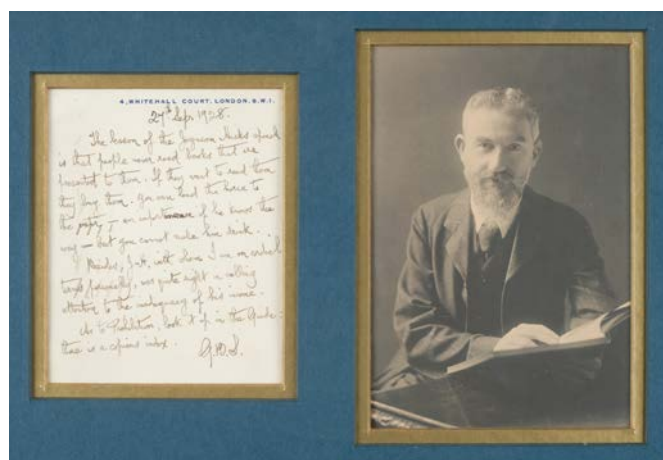 4, WHITEHALL COURT, LONDON, S.W.1.
27th Sep. 1928.
The lesson of the Jynson Hicks episode
is that people never read books that are
presented to them. If they want to read them
they buy them. You can lead the horse to
the — an if he knows the
way — but you cannot make him drink.
Besides, J-H, with whom I am on cordial
terms personally, was quite right in calling
attention to the inadequacy of his income.
As to Prohibition, look it up in the Guide:
there is a copious index.
G.B.S.